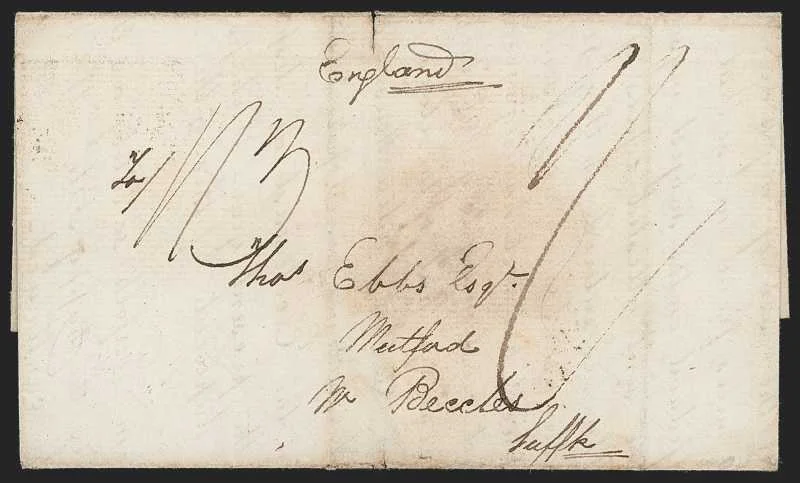 England
To/
Thos Ebbs Esqr.
Mutford
Nr Beccles
Suffk